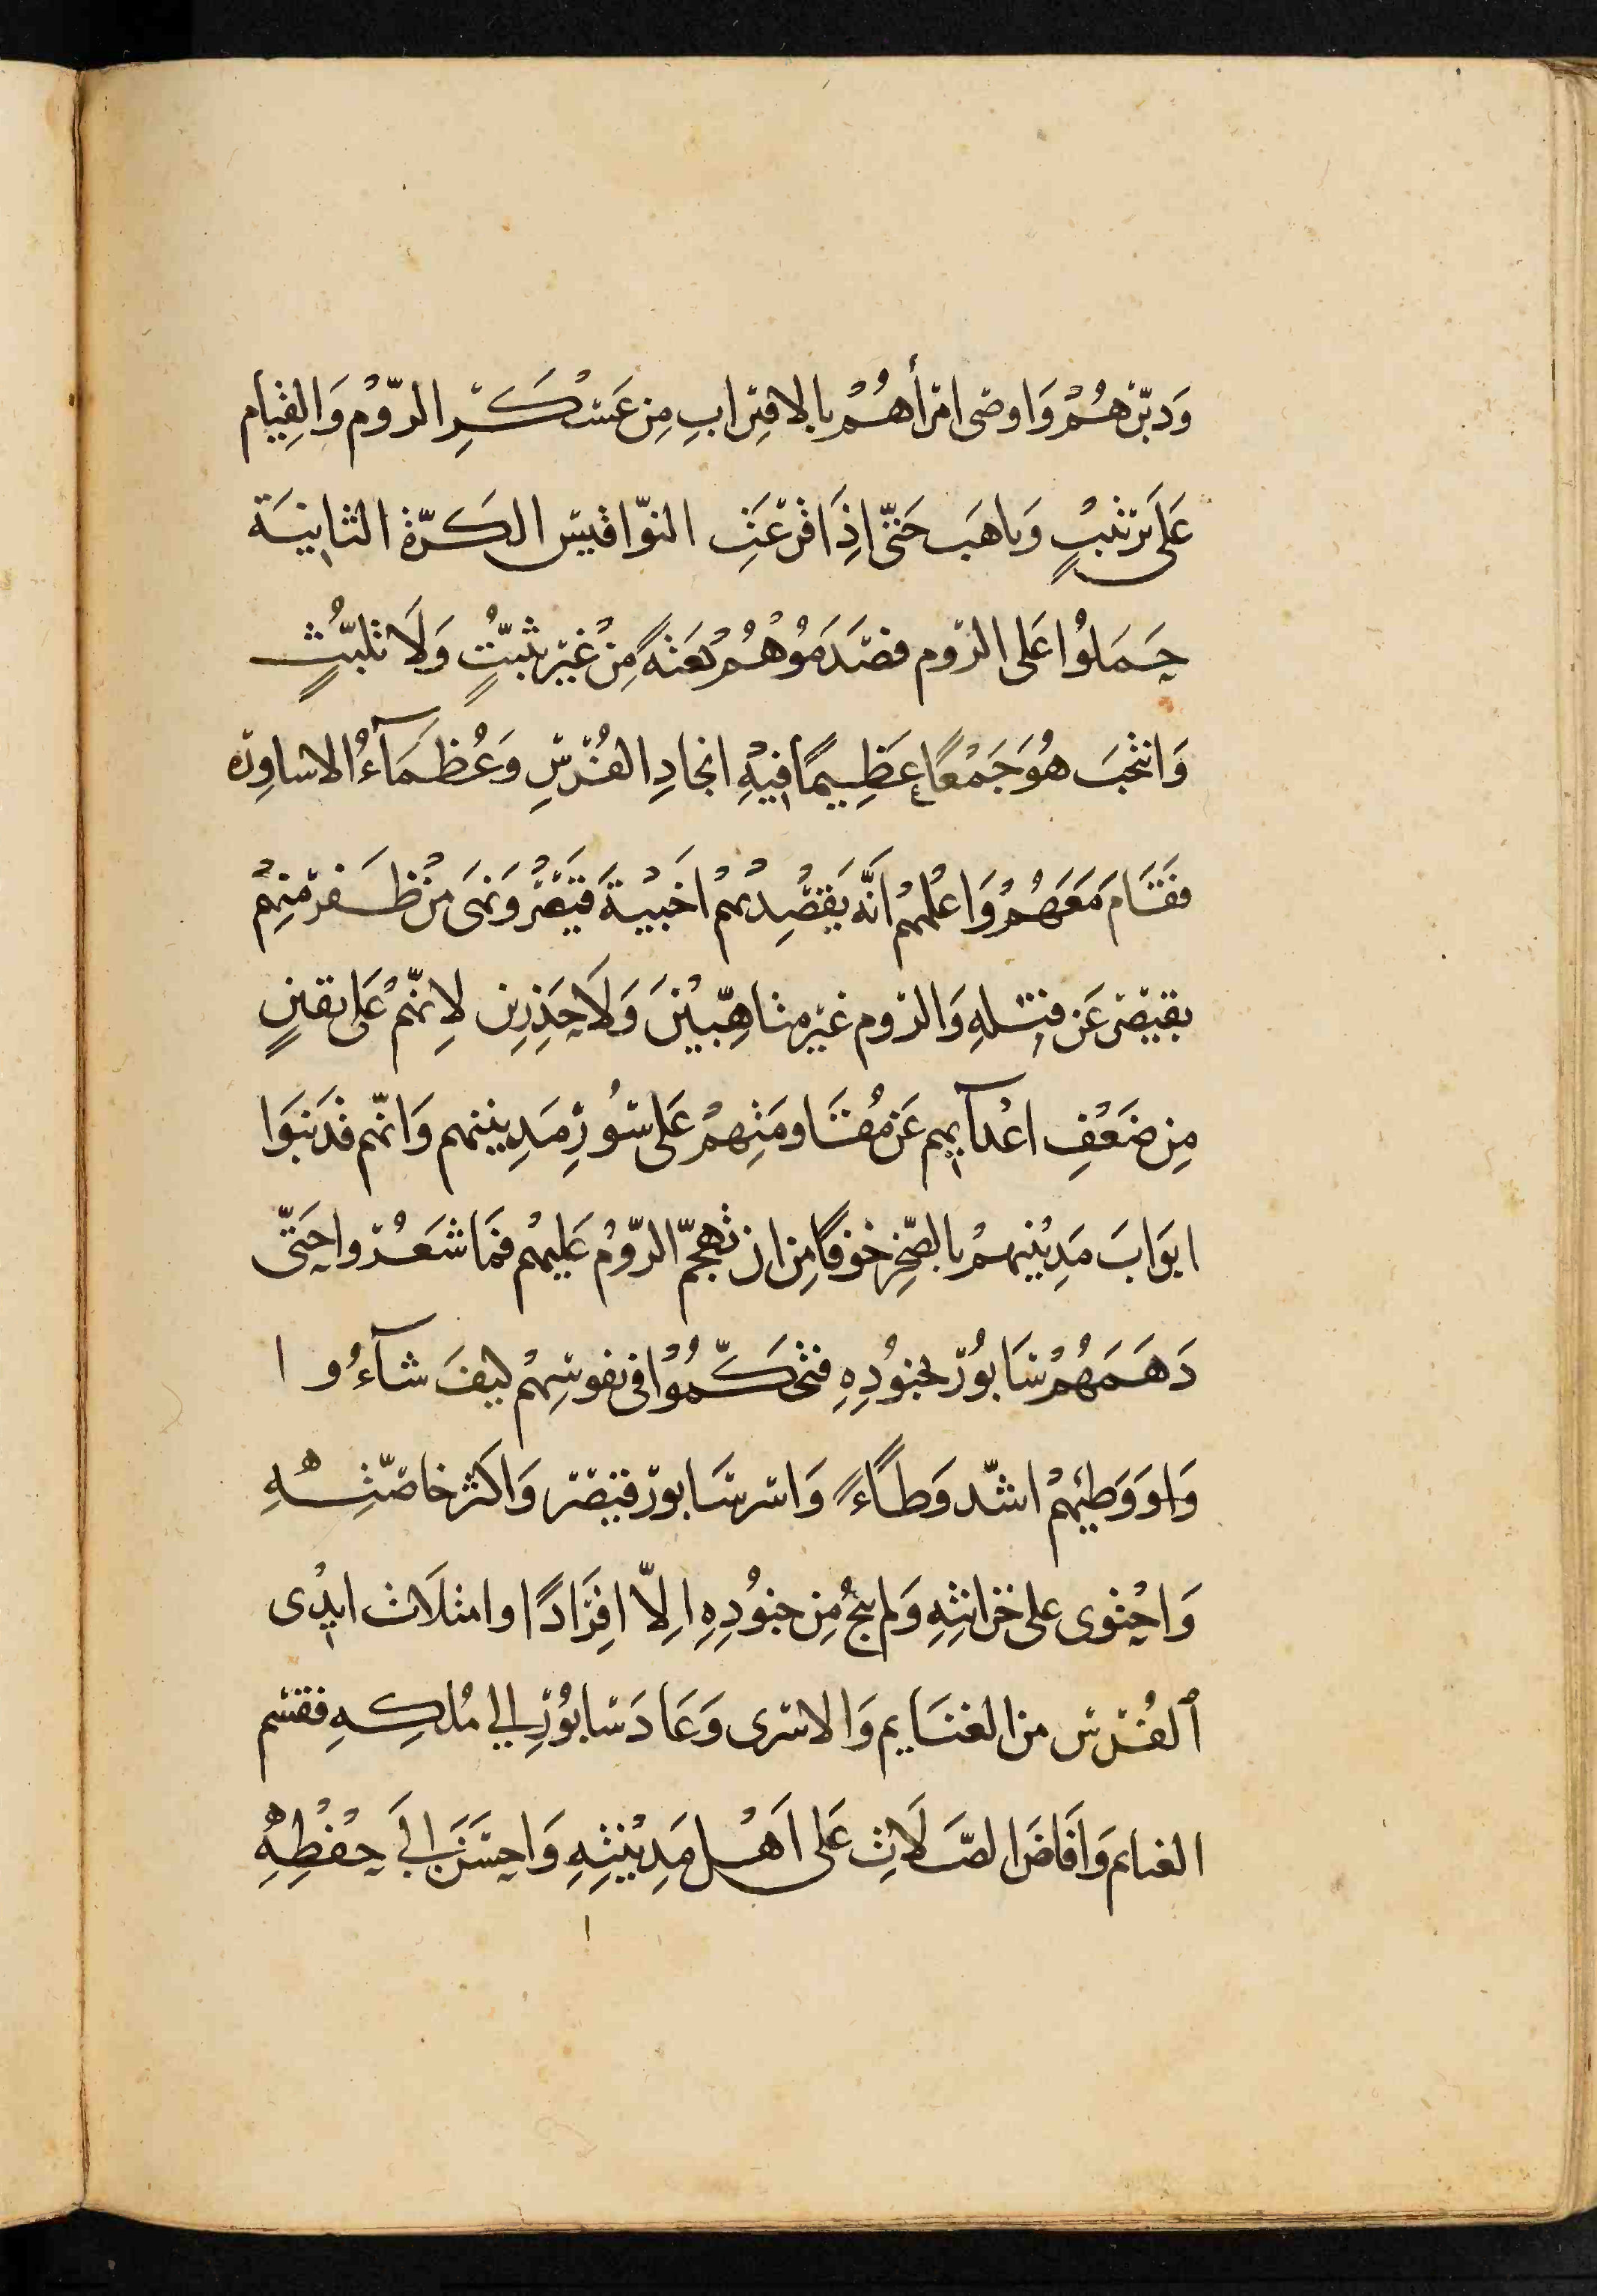 وَدبّرهُمْ وَاوصى امرأهُمْ بالاقتِرابِ مِن عَسْكَرِ الرّوْم وَالقِيام
عَلَى ترتيبٍ وَتاهَب حَتّى اِذَا قرْعَتِ النوّاقيس الكَرّة الثانِيَة
حَمَلوُا عَلى الروم فصَدَمَوُهُمْ بَغتةً مِنْ غَيْر تثبّتٍ وَلَا تلبّثٍ
وَانتْخبَ هُوَ جَمْعًا عَظِيمًا فيْهِ انجادِ الفُرْسِ وَعُظمَآءُ الاساوِرة
فقَامَ مَعَهُمْ وَاعْلمهُمْ انَّه يَقصُدِ بهُمْ اخَبيْةَ قيَصْرُ وَنَهىَ مَنْ ظَفر مْنِهمْ
بقيصَر عَن قتْلهِ وَالروم غيَر متاهِّبيْنَ وَلَا حَذِرِين لاِنّهمْ عَلى يقينٍ
مِن ضَعْفِ اعْدآيهِم عَن مُقَاومَتِهمْ عَلى سُورِ مَدِينتهم وَانّهم قدَ بَنوَا
ابوَابَ مَدِيْنتِهمْ بالصّخِر خوفًا مِن ان تهجمّ الرّوْم عَليهمْ فمَا شعَرُوا حَتّى
دَهَمَهُمْ سَابوُر بجنوُدِهِ فتحكّمُوْا في نفوسِهمْ كيفَ شآءُو ا
وَاوَوَطيهُمْ اشّد وَطاًءً وَاسر سَابور قيصَر وَاكثر خاصّتِهِ
وَاحْتوى على خزانتِهِ وَلم ينجُ مِن جنوُدِهِ اِلّا افِرَادًا وامتلَات ايدْى
ٱلفُرْس من الغنَايم وَالاسرى وَعَادَ سَابوُر اِلي مُلكِهِ فقسَم
الغنايم وَافَاضَ الصّلَاتِ عَلى اَهْل مَديْنتِهِ وَاحسَنَ اِلَى حِفْظِهِ